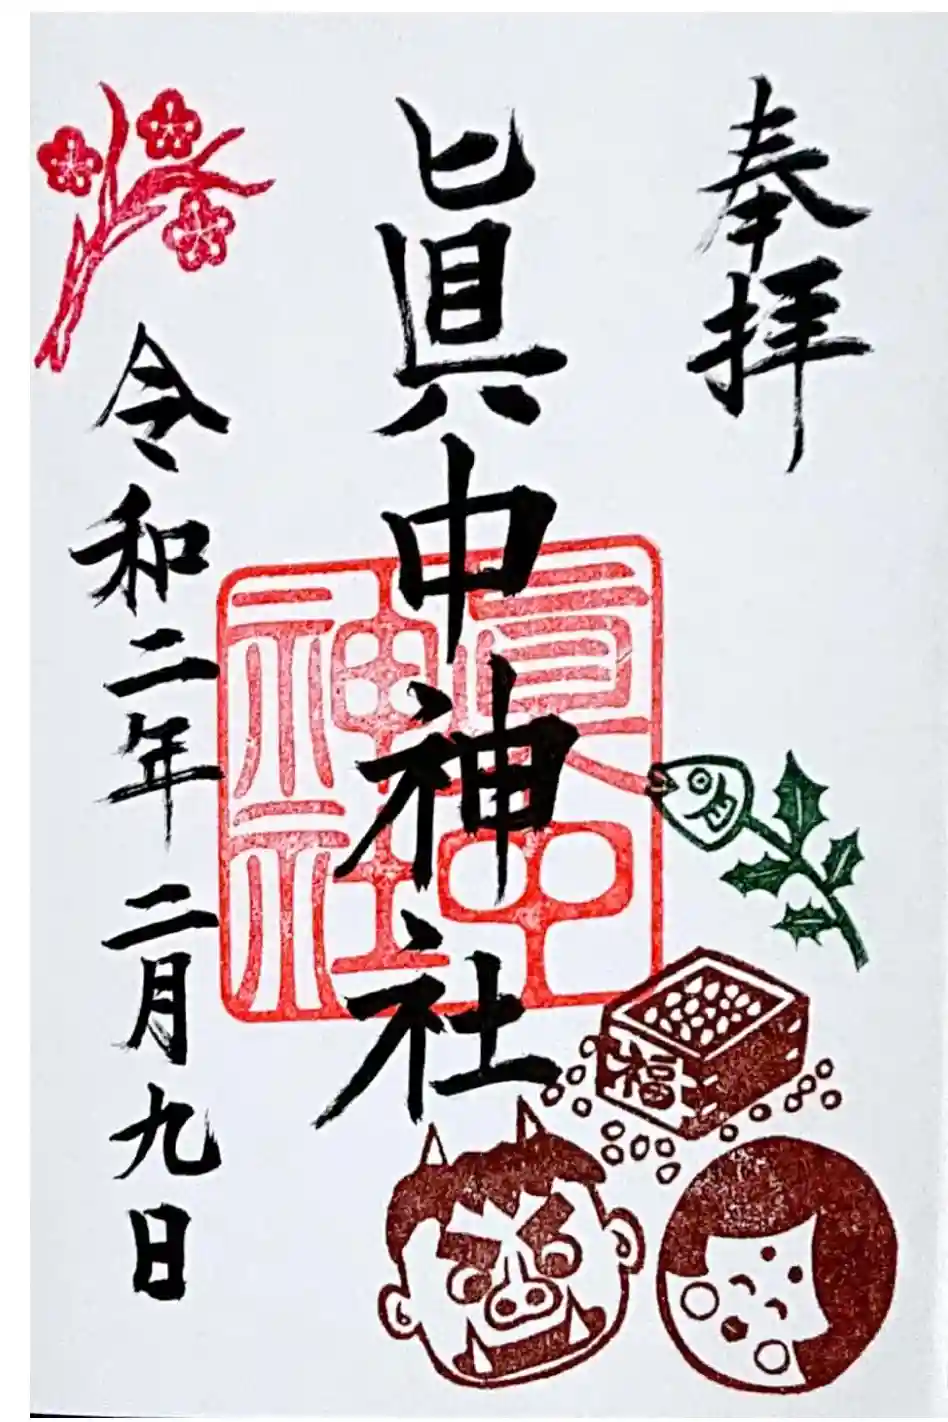 奉拝
眞中神社
眞中
神社
福
令和二年二月九日